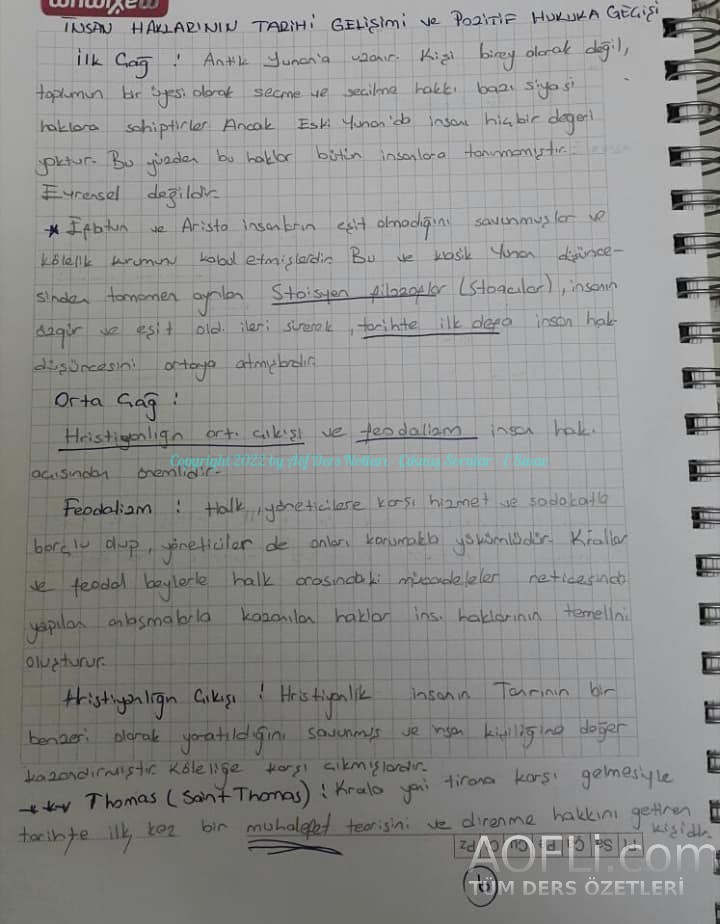 İNSAN HAKLARININ TARİHİ GELİŞİMİ ve POZİTİF HUKUKA GEÇİŞİ
İlk Çağ : Antik Yunan'a uzanır. Kişi birey olarak değil,
toplumun bir üyesi olarak seçme ve seçilme hakkı bazı siyasi
haklara sahiptirler Ancak Eski Yunan'da insanı hiçbir değeri
yoktur. Bu yüzden bu haklar bütün insanlara tanınmamıştır.
Evrensel değildir.
* Eflatun ve Aristo insanların eşit olmadığını savunmuşlar ve
kölelik kurumunu kabul etmişlerdir. Bu ve klasik Yunan düşünce-
sinden tamamen ayrılan Stoisyen filozoflar (Stoacılar), insanın
özgür ve eşit old. ileri sürerek, tarihte ilk defa insan hak
düşüncesini ortaya atmışlardır.
Orta Çağ :
Hristiyanlığın ort. çıkışı ve feodalizm insan hak.
açısından önemlidir.
Copyright 2022 by Aöf Ders Notları - Çıkmış Sorular - Z.
Feodalizm : Halk, yöneticilere karşı hizmet ve sadakatla
borçlu olup, yöneticiler de onları korumakla yükümlüdür. Krallar
ve feodal beylerle halk arasındaki mücadeleler neticesinde
yapılan anlaşmalarla kazanılan haklar ins. haklarının temelini
oluşturur.
Hristiyanlığın Çıkışı : Hristiyanlık insanın Tanrının bir
benzeri olarak yaratıldığını savunmuş ve insan kişiliğine değer
kazandırmıştır. Köleliğe karşı çıkmışlardır.
Thomas (Saint Thomas) : Krala yani tirana karşı gelmesiyle
tarihte ilk kez bir muhalefet teorisini ve direnme hakkını getiren
kişidir.
Pt Sa Ça Pe Cu Ct Pz
6
AOFLi.com
TÜM DERS ÖZETLERİ